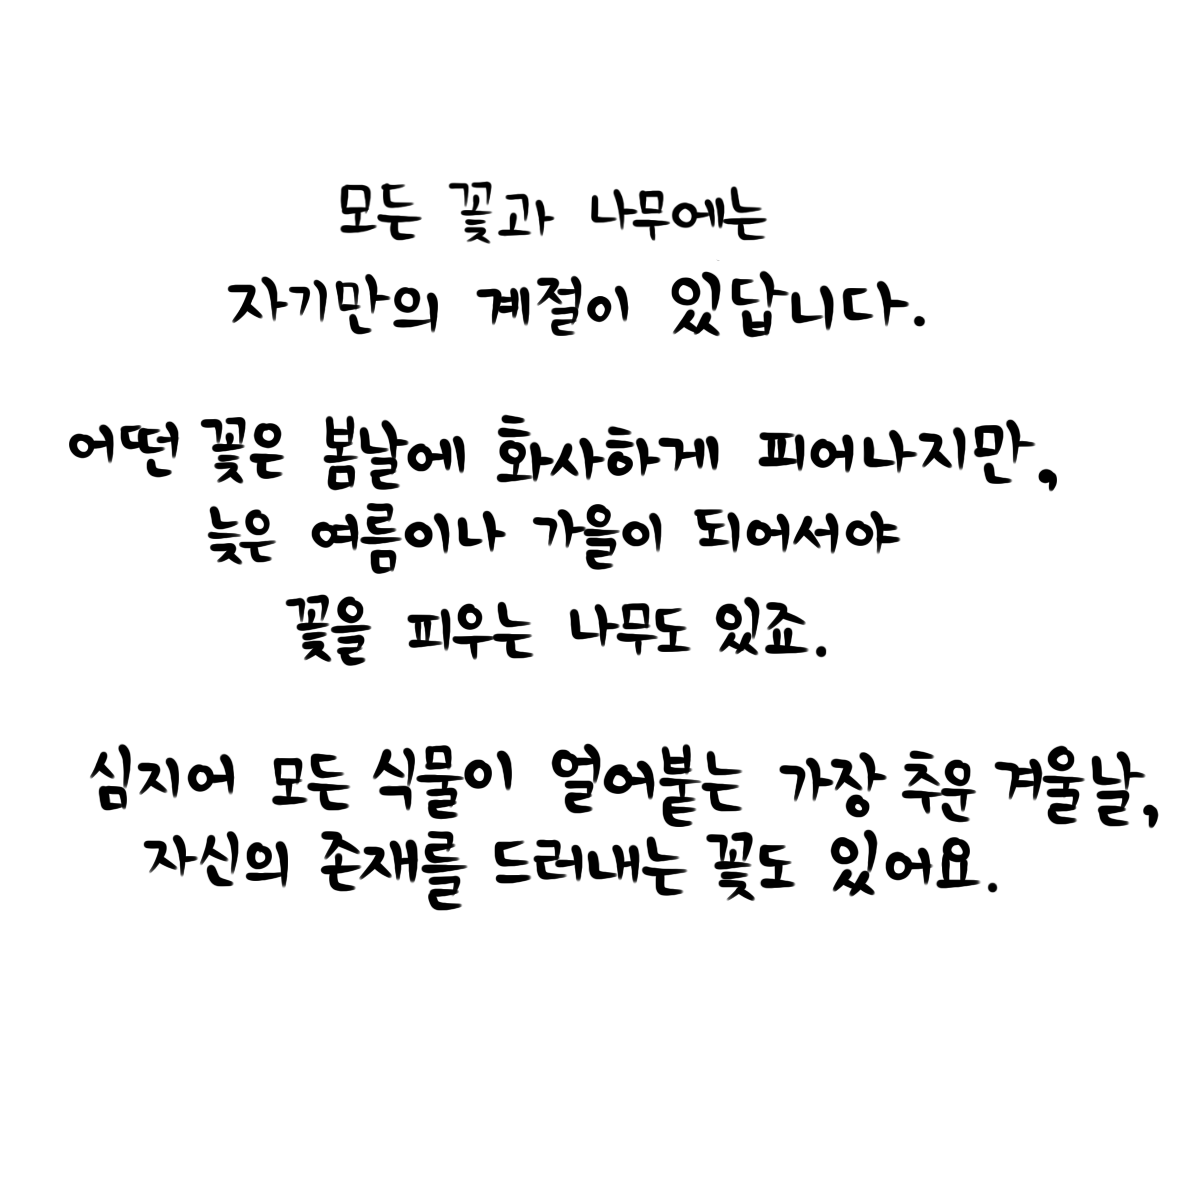 모든 꽃과 나무에는
자기만의 계절이 있답니다.
어떤 꽃은 봄날에 화사하게 피어나지만,
늦은 여름이나 가을이 되어서야
꽃을 피우는 나무도 있죠.
심지어 모든 식물이 얼어붙는 가장 추운 겨울날,
자신의 존재를 드러내는 꽃도 있어요.